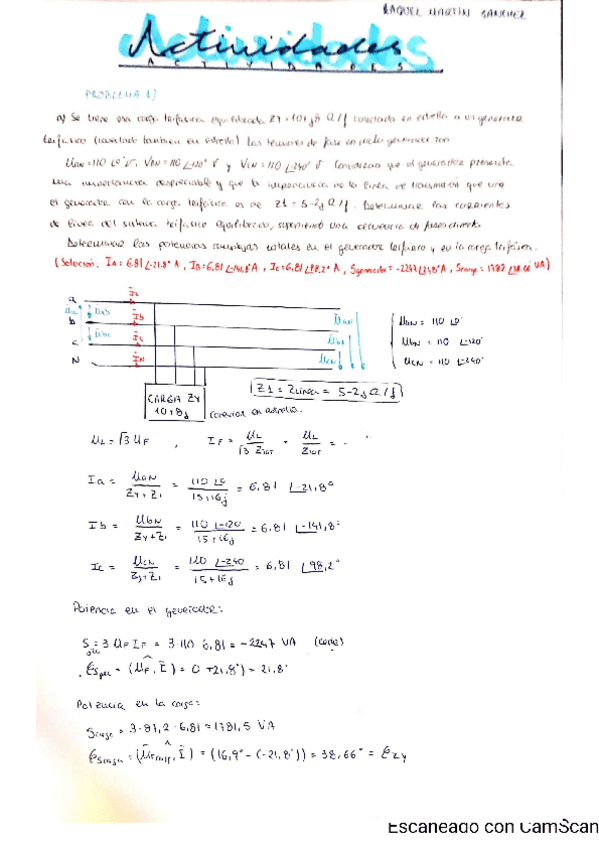 RAQUEL MARTIN SANCHEZ
Actividades
ACTIVIDADES
PROBLEMA 1)
a) Se tiene una carga trifásica equilibrada ZY = 10+j8 Ω/f conectada en estrella a un generador
trifásico (conectado también en estrella) Las tensiones de fase en dicho generador son
UAN = 110 ∠0° V, VBN = 110 ∠-120° V y VCN = 110 ∠-240° V Considerar que el generador presenta
una impedancia despreciable y que la impedancia de la línea de transmisión que une
el generador con la carga trifásica es de Z1 = 5-2j Ω/f. Determinar las corrientes
de línea del sistema trifásico equilibrado, suponiendo una secuencia de fases directa.
Determinar las potencias complejas totales en el generador trifásico y en la carga trifásica.
(Solución, IA = 6.81 ∠-21.8° A, IB = 6,81 ∠-141,8° A, IC = 6,81 ∠98,2° A, Sgenerador = -2247 ∠21,8° A, Scarga = 1782 ∠38.66° VA)
a
b
c
N
Ia
Ib
Ic
IN
Uab
Ubc
UaN
UbN
UcN
UaN = 110 ∠0°
UbN = 110 ∠-120°
UcN = 110 ∠-240°
CARGA ZY
10+8j
conexión en estrella.
Z1 = Zlinea = 5-2j Ω/f
UL = √3 UF , IF = UL / √3 Ztot = UL / Ztot = - ..
Ia = UaN / ZY+Z1 = 110 ∠0 / 15+6j = 6.81 ∠-21,8°
Ib = UbN / ZY+Z1 = 110 ∠-120 / 15+6j = 6,81 ∠-141,8°
Ic = UcN / ZY+Z1 = 110 ∠-240 / 15+6j = 6,81 ∠98,2°
Potencia en el generador:
S gen = 3 UF IF = 3·110·6.81 = -2247 VA (cede)
φSgen = (UF, I) = 0 +21,8°) = 21.8°
Potencia en la carga:
Scarga = 3·87,2·6,81 = 1781,5 VA
φScarga = (UFcarg, I) = (16,9° - (-21,8°)) = 38,66° = φZY
Escaneado con CamScan